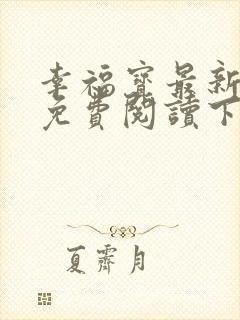 幸福寶最新
免費閱讀下
夏霽月